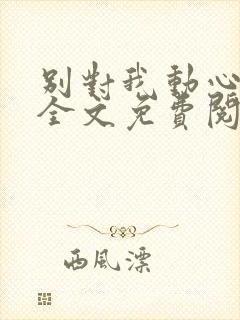 別對我動心
全文免費閱
西風漂